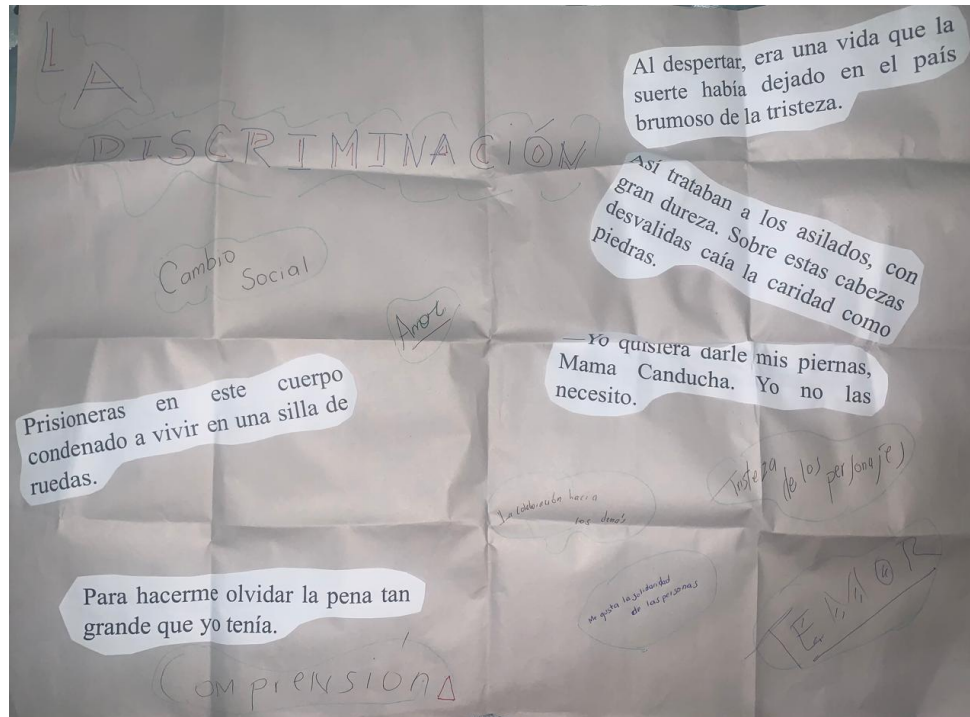 LA
DISCRIMINACIÓN
Al despertar, era una vida que la
suerte había dejado en el país
brumoso de la tristeza.
Así trataban a los asilados, con
gran dureza. Sobre estas cabezas
desvalidas caía la caridad como
piedras.
Cambio
Social
Amor
—Yo quisiera darle mis piernas,
Mama Canducha. Yo no las
necesito.
Prisioneras en este cuerpo
condenado a vivir en una silla de
ruedas.
Tristeza
de los personajes
La colaboración hacia
los demás
Me gusta la solidaridad
de las personas
TEMOR
Para hacerme olvidar la pena tan
grande que yo tenía.
Comprensión